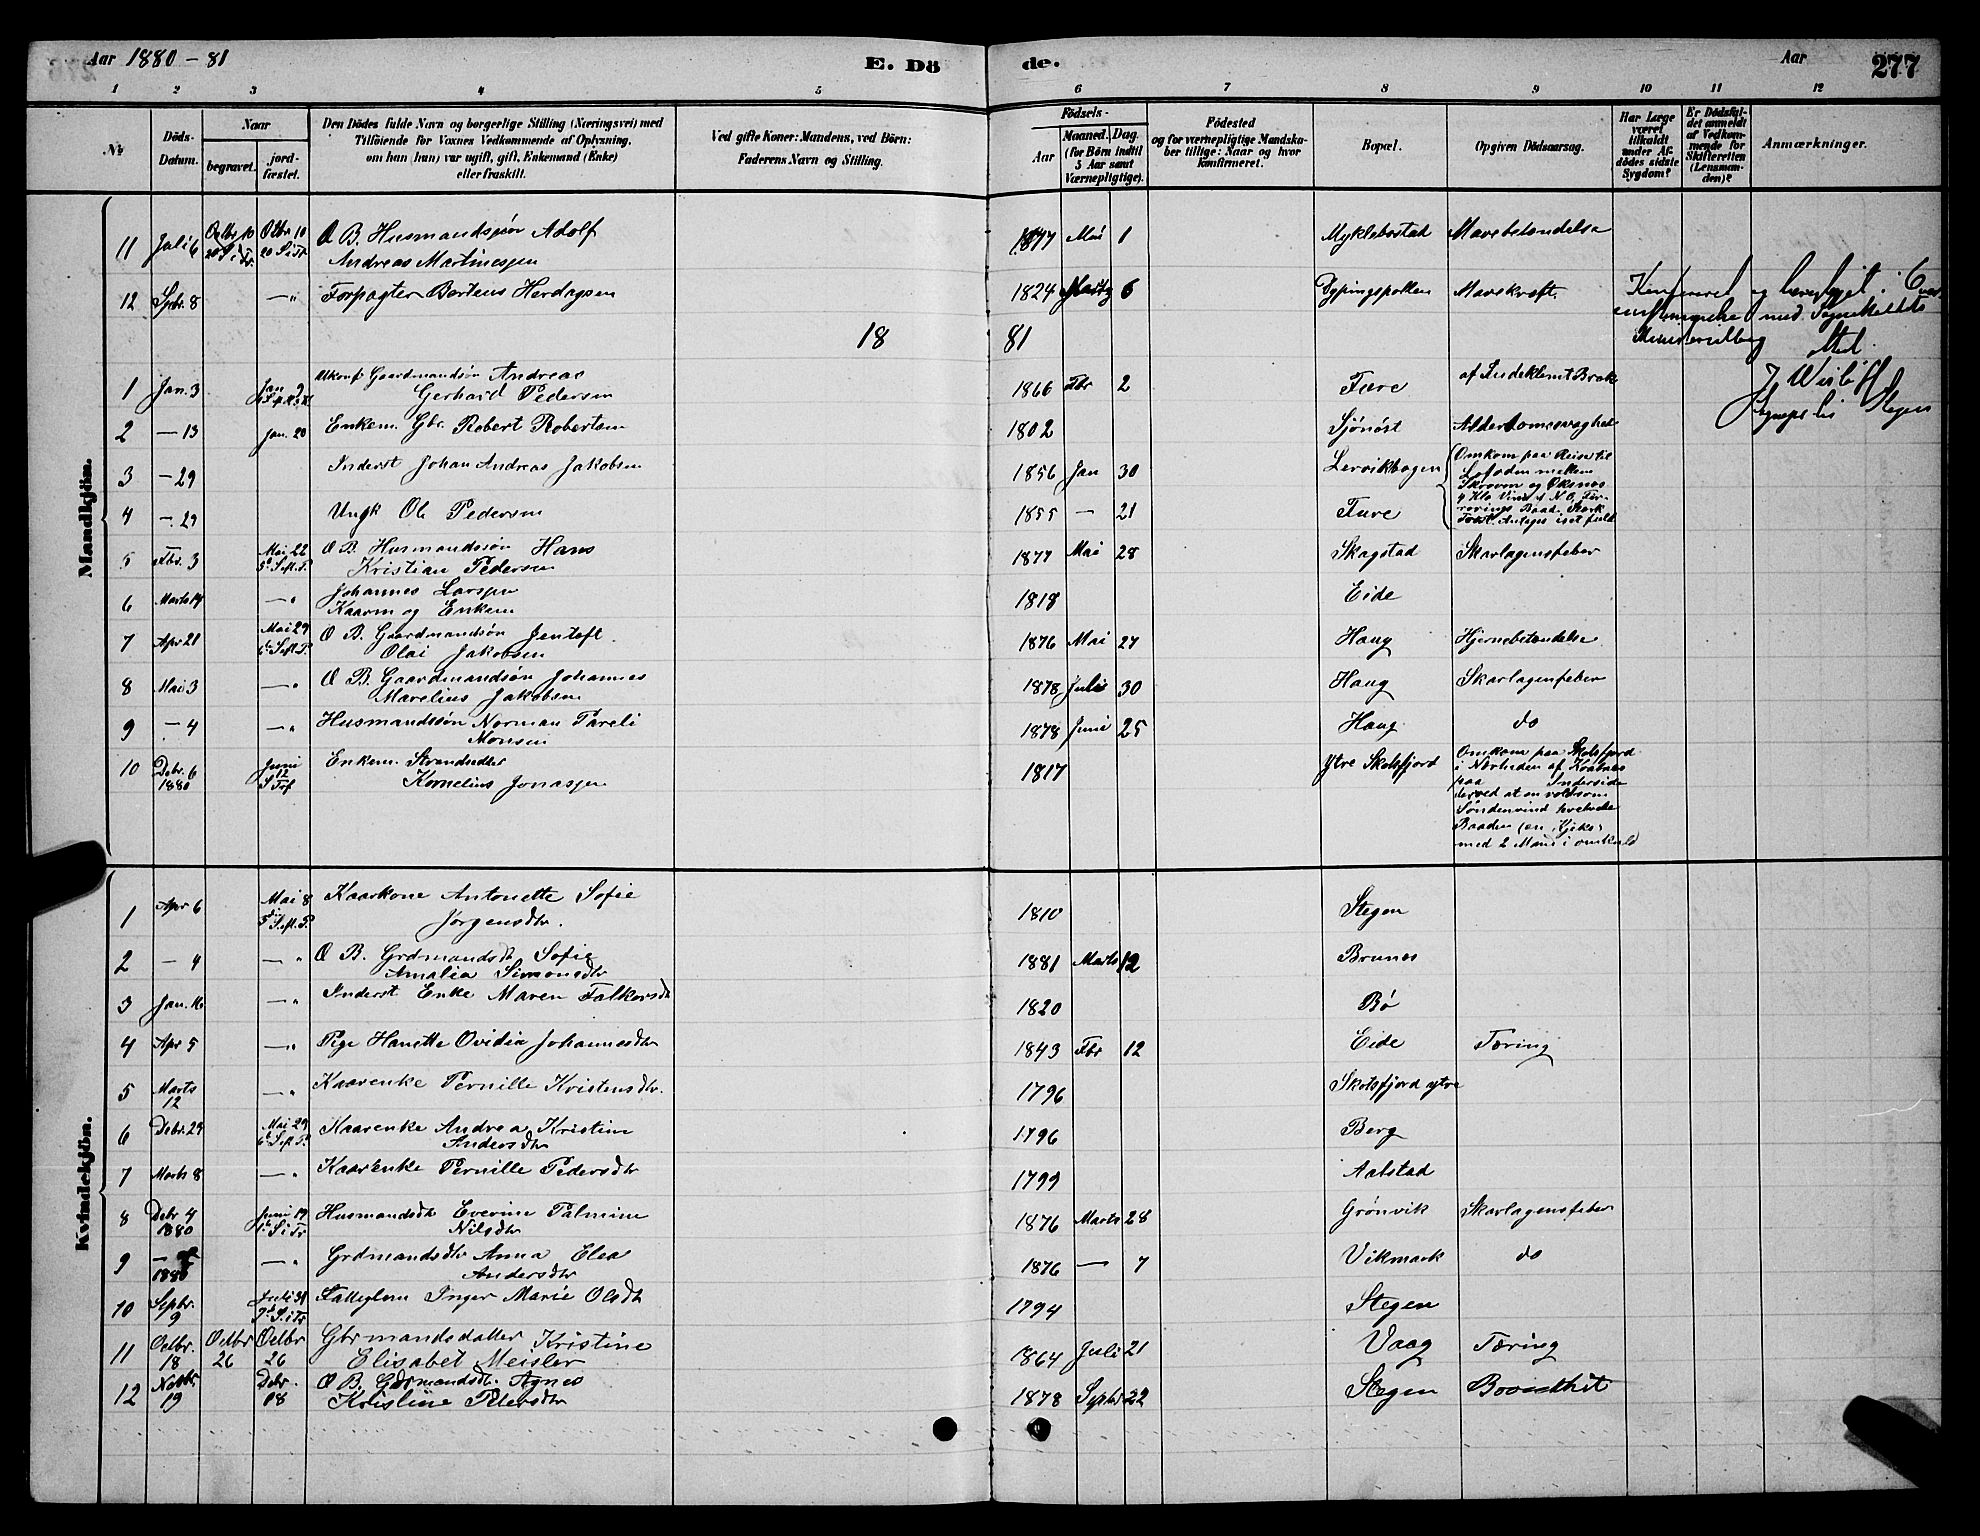 Aar 1880 - 81 E. Dö de. Aar 277
1 2 3 4 5 6 7 8 9 10 11 12
No.
Döds-Datum.
Naar
begravet.
jordfæstet.
Den Dödes fulde Navn og borgerlige Stilling (Næringsvei) med
Tilföiende for Voxnes Vedkommende af Oplysning,
om han (hun) var ugift, gift, Enkemand (Enke)
eller fraskilt.
Ved gifte Koner: Mandens, ved Börn:
Faderens Navn og Stilling.
Födsels-
Aar
Maaned. Dag.
(for Börn indtil
5 Aar samt
Værnepligtige).
Födested
og for værnepligtige Mandska-
ber tillige: Naar og hvor
konfirmeret.
Bopæl.
Opgiven Dödsaarsag.
Har Læge
været
tilkaldt
under Af-
dödes sidste
Sygdom?
Er Dödsfal-
det anmeldt
af Vedkom-
mende for
Skifteretten
(Lensman-
den)?
Anmærkninger.
Mandkjön.
11 Juli 6 Octbr 10 20 S i Tr. Otbr 10 20 S i Tr O B. Husmandssøn Adolf 1877 Mai 1 Myklebostad Mavebetændelse
Andreas Martinessen
12 8 —" Forpagter Berteus Herdagsen 1824 6 Dypingspollen Mavekræft.
Konfereret og i
med
Attst.
18 81
1 Jan. 3 Jan 9 Ukonf Gaardmandsøn Andreas 1866 Fbr 2 Fure af Indeklemt Brok
Gerhard Pedersen
2 — 13 Jan. 20 Enkem. Gbr. Robert Robertsen 1802 Sjönöst Alderdomssvaghed
3 — 29 Inderst Johan Andreas Jakobsen 1856 Jan 30 Lervikbogen Omkom paa Reisen til
Lofoden mellem
Skroven og Øksnes
4 — 29 Ungk Ole Pedersen 1855 — 21 Fure
5 Fbr. 3 Mai 22 5 S. ef. P. O B. Husmandssøn Hans 1877 Mai 28 Skagstad Skarlagensfeber
Kristian Pedersen
6 Marts 14 —" Johannes Larssen 1818 Eide
Kaarm og Enkem
7 Apr 21 Mai 29 6 S. ef. P. O B. Gaardmandsøn Jentoft 1876 Mai 27 Haug Hjernebetændelse
Olai Jakobsen
8 Mai 3 —" O B. Gaardmandsøn Johannes 1878 Juli 30 Haug Skarlagensfeber
Marelius Jakobsen
9 — 4 —" Husmandssøn Norman Pareli 1878 Juni 25 Haug do
Monsen
10 Debr. 6 1880 Juni 12 S Tr Enkem. Strandsidder 1817 Ytre Skotsfjord Omkom paa Skotsfjord
Kornelius Jonassen
i Nærheden af
paa Inderside
derved at en voldsom
Söndenvind hvelvede
Baaden (en Kjeks)
med 2 Mand i omkuld
Kvindekjön.
1 Apr 6 Mai 8 S. ef. P. Kaarkone Antonette Sofie 1810 Stegen
Jörgensdtr.
2 — 4 —" O B. Grdmandsdt Sofie 1881 Marts 12 Brunes
Amalia Simonsdtr
3 Jan. 16 —" Inderst Enke Maren Falkersdt 1820 Bö
4 Apr 5 —" Pige Hanette Ovidia Johannesdtr 1843 Fbr 12 Eide Tæring
5 Marts 12 —" Kaarenke Pernille Kristensdtr. 1796 Skotsfjord ytre
6 Debr. 29 Mai 29 6 S. ef. P. Kaarenke Andrea Kristine 1796 Berg
Andersdtr
7 Marts 8 —" Kaarenke Pernille Pedersdtr 1799 Aalstad
8 Debr 4 1880 Juni 19 S i Tr Husmandsdtr Everine Palmine 1876 Marts 28 Grönvik Skarlagensfeber
Nilsdtr
9 — 1880 —" Grdmandsdtr Anna Elea 1876 — 7 Vikmark do
Andersdtr
10 Septbr. 9 Juli 31 7 S i Tr Fattiglem Inger Marie Olsdtr 1794 Stegen
11 Octbr. 18 Octbr 26 Octbr 26 Gbrmandsdatter Kristine 1864 Juli 21 Vaag Tæring
Elisabet Meisler
12 Novbr. 19 Debr. 18 O B. Gdrmandsdt. Agnes 1878 Septbr 22 Stegen
Kristine Petersdtr